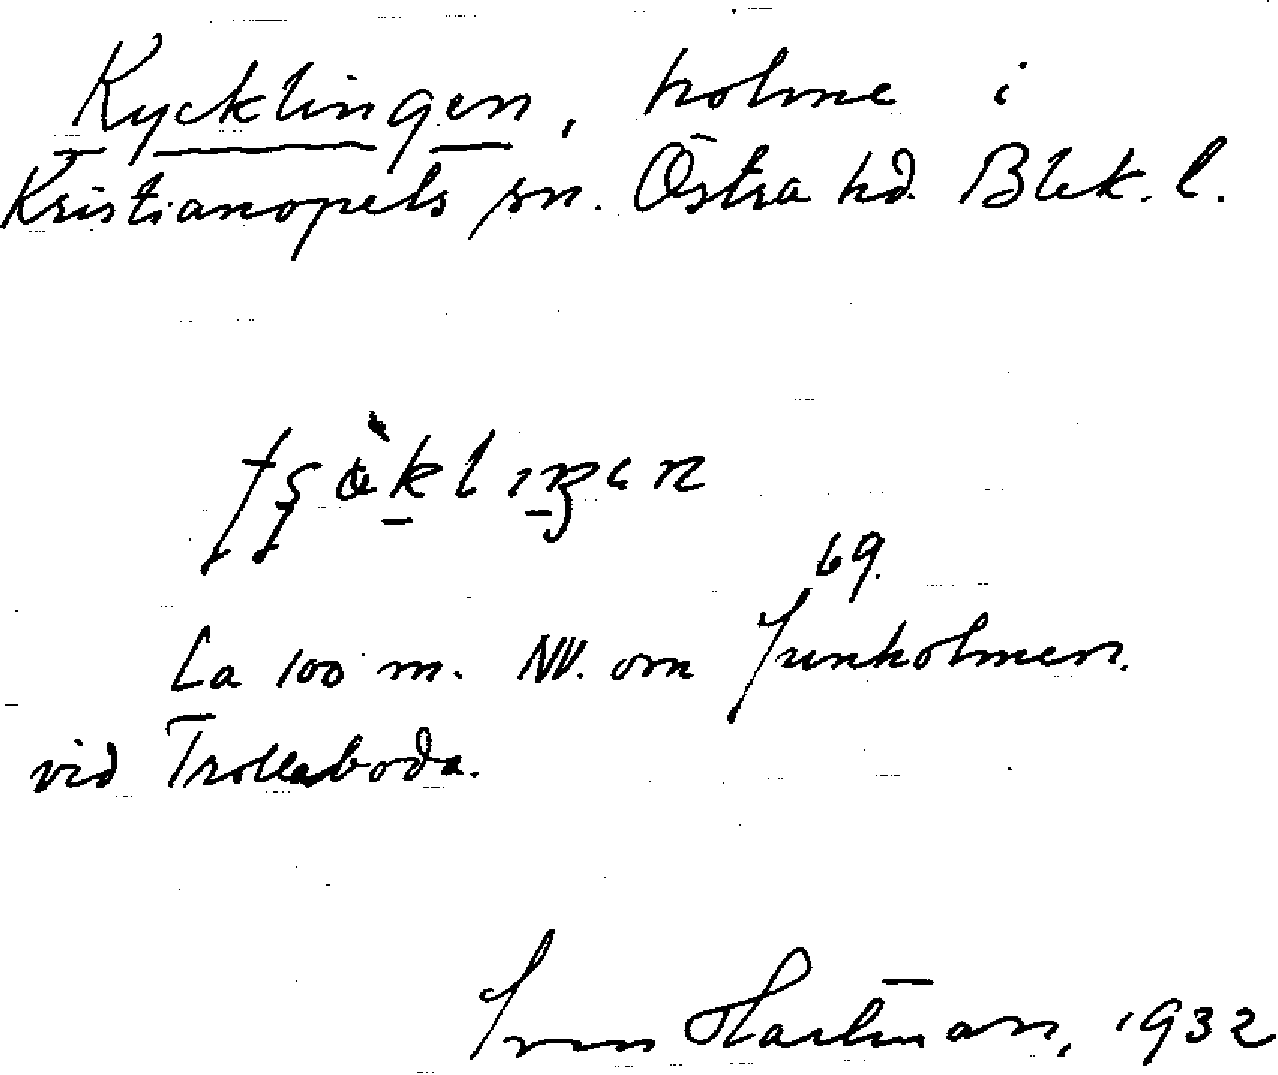 Kycklingen, holme i
Kristianopels sn. Östra hd. Blek. l.
69.
Ca 100 m. NV. om Junkholmen.
vid Trollaboda.
Sven Hartman, 1932